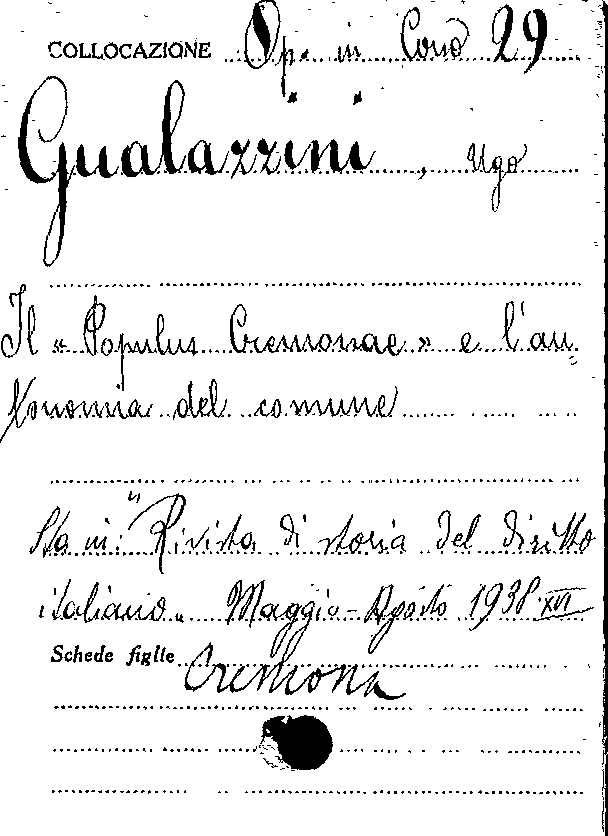 COLLOCAZIONE Op. in Corso 29
Gualazzini, Ugo
Il « Populus Cremonae » e l'au=
tonomia del comune
Sta in: "Rivista di storia del diritto
italiano„ Maggio-Agosto 1938-XVI
Schede figlie Cremona